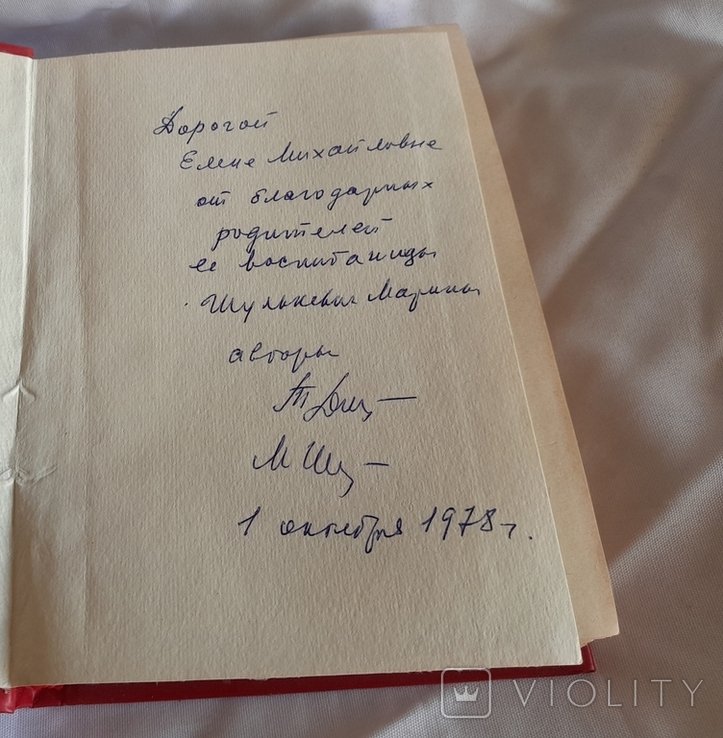 Дорогой
Елене Михайловне
от благодарных
родителей
ее воспитаницы
Шулькевич Марины
авторы
М Шу
1 октября 1978 г.
VIOLITY